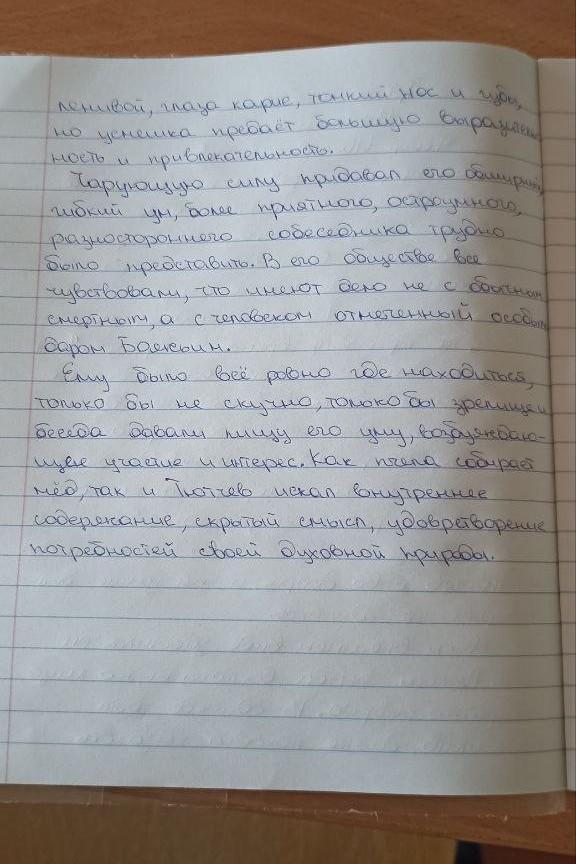 ленивой, глаза карие, тонкий нос и губы,
но усмешка предаёт большую выразитель
ность и привлекательность.
Чарующую силу придавал его обширный,
гибкий ум, более приятного, остроумного,
разностороннего собеседника трудно
было представить. В его обществе все
чувствовали, что имеют дело не с обычным
смертным, а с человеком отмеченный особым
даром Божьим.
Ему было всё ровно где находиться,
только бы не скучно, только бы зрелище и
беседа давали пищу его уму, возбуждаю-
щее участие и интерес. Как пчела собирает
мёд, так и Тютчев искал внутреннее
содержание, скрытый смысл, удовретворение
потребностей своей духовной природы.